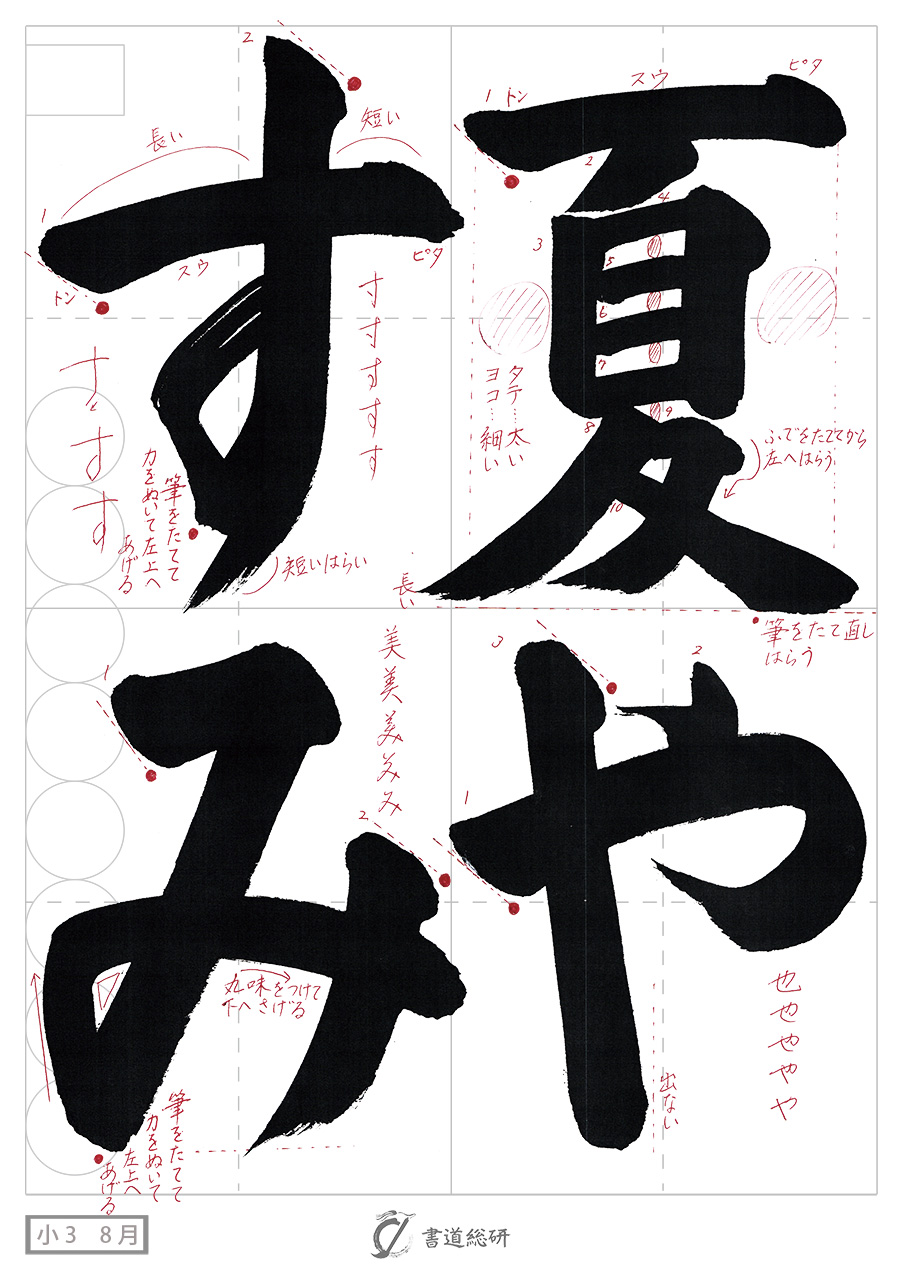 夏
や
す
み
1 トン
スウ
ピタ
2
3
4
5
6
7
8
9
10
タテ…太い
ヨコ…細い
ふでをたててから
左へはらう
長い
筆をたて直し
はらう
2
長い
短い
1
トン
スウ
ピタ
寸
寸
す
す
す
筆をたてて
力をぬいて左上へ
あげる
短いはらい
3
2
1
出ない
也
也
や
や
や
1
2
美
美
美
み
み
丸味をつけて
下へさげる
筆をたてて
力をぬいて
左上へ
あげる
小3 8月
書道総研